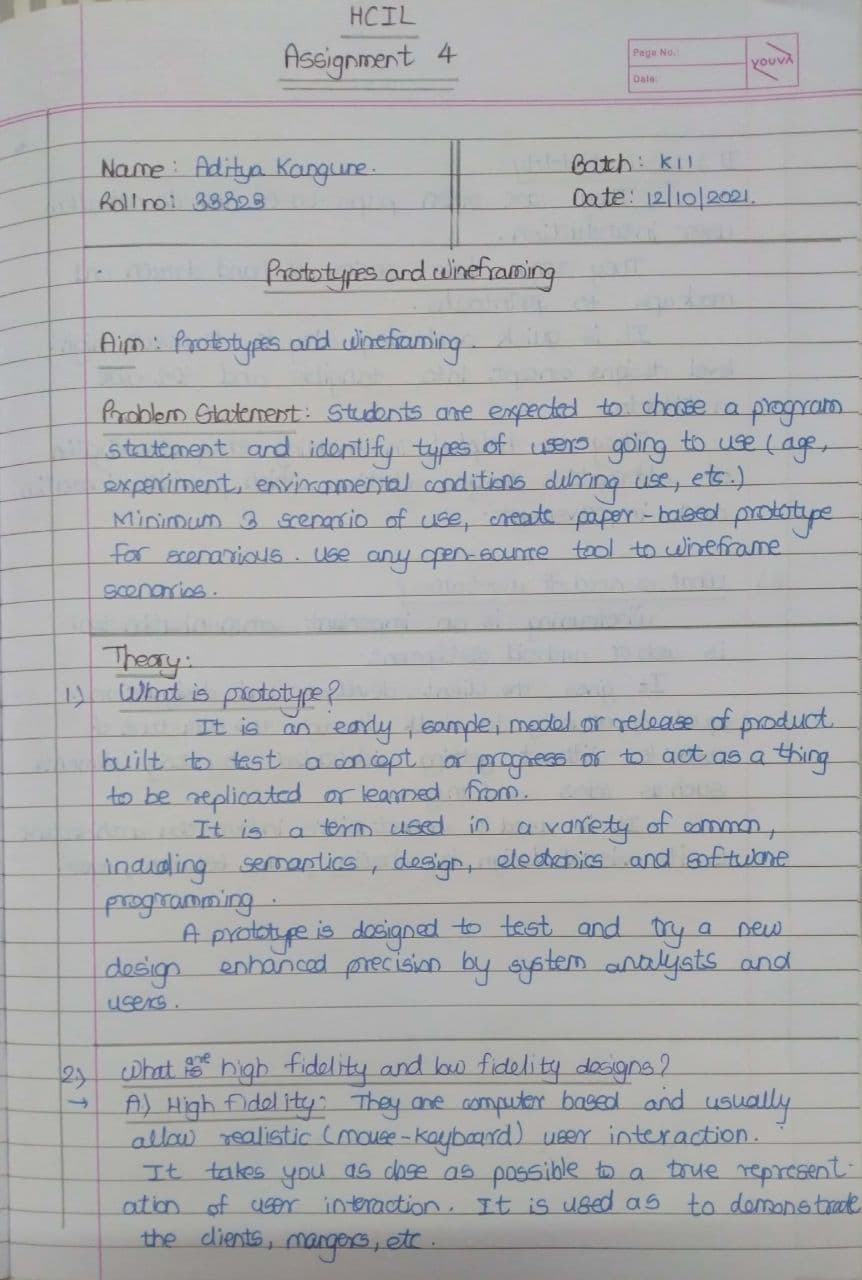 HCIL
Assignment 4
Page No.:
Date:
YOUVA
Name: Aditya Kangune.
Batch: K11
Roll no: 33323
Date: 12/10/2021.
Prototypes and wireframing
Aim: Prototypes and wireframing.
Problem Statement: Students are expected to choose a program
statement and identify types of users going to use (age,
experiment, environmental conditions during use, etc.)
Minimum 3 scenario of use, create paper-based prototype
for scenarious. Use any open-source tool to wireframe
scenarios.
Theory:
1.) What is prototype?
It is an early, sample, model or release of product
built to test a concept or progress or to act as a thing
to be replicated or learned from.
It is a term used in a variety of common,
including semantics, design, electronics and software
programming.
A prototype is designed to test and try a new
design enhanced precision by system analysts and
users.
2.) What are high fidelity and low fidelity designs?
→ A) High fidelity: They are computer based and usually
allow realistic (mouse-keyboard) user interaction.
It takes you as close as possible to a true represent-
ation of user interaction. It is used as to demonstrate
the clients, mangers, etc.